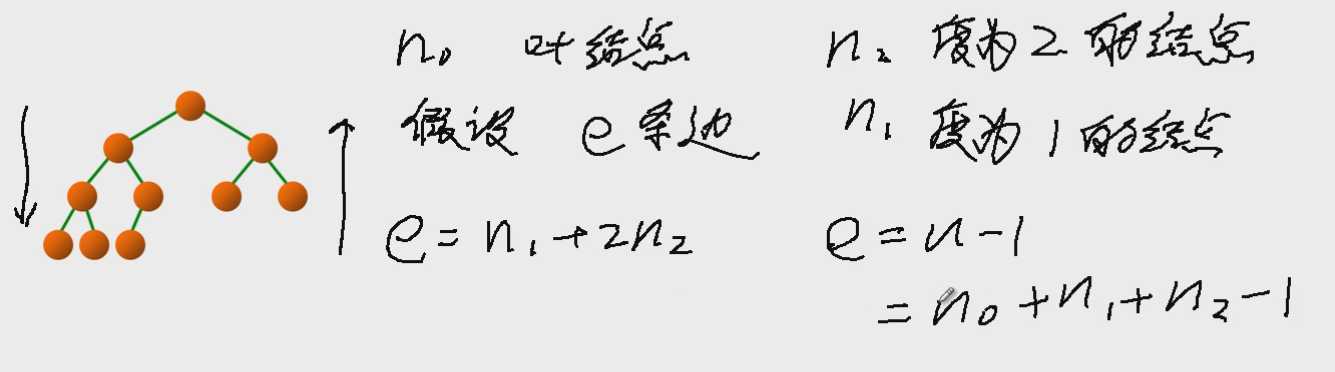 n₀ 叶结点
n₂ 度为2的结点
假设 e条边
n₁ 度为1的结点
e=n₁+2n₂
e=n-1
=n₀+n₁+n₂-1